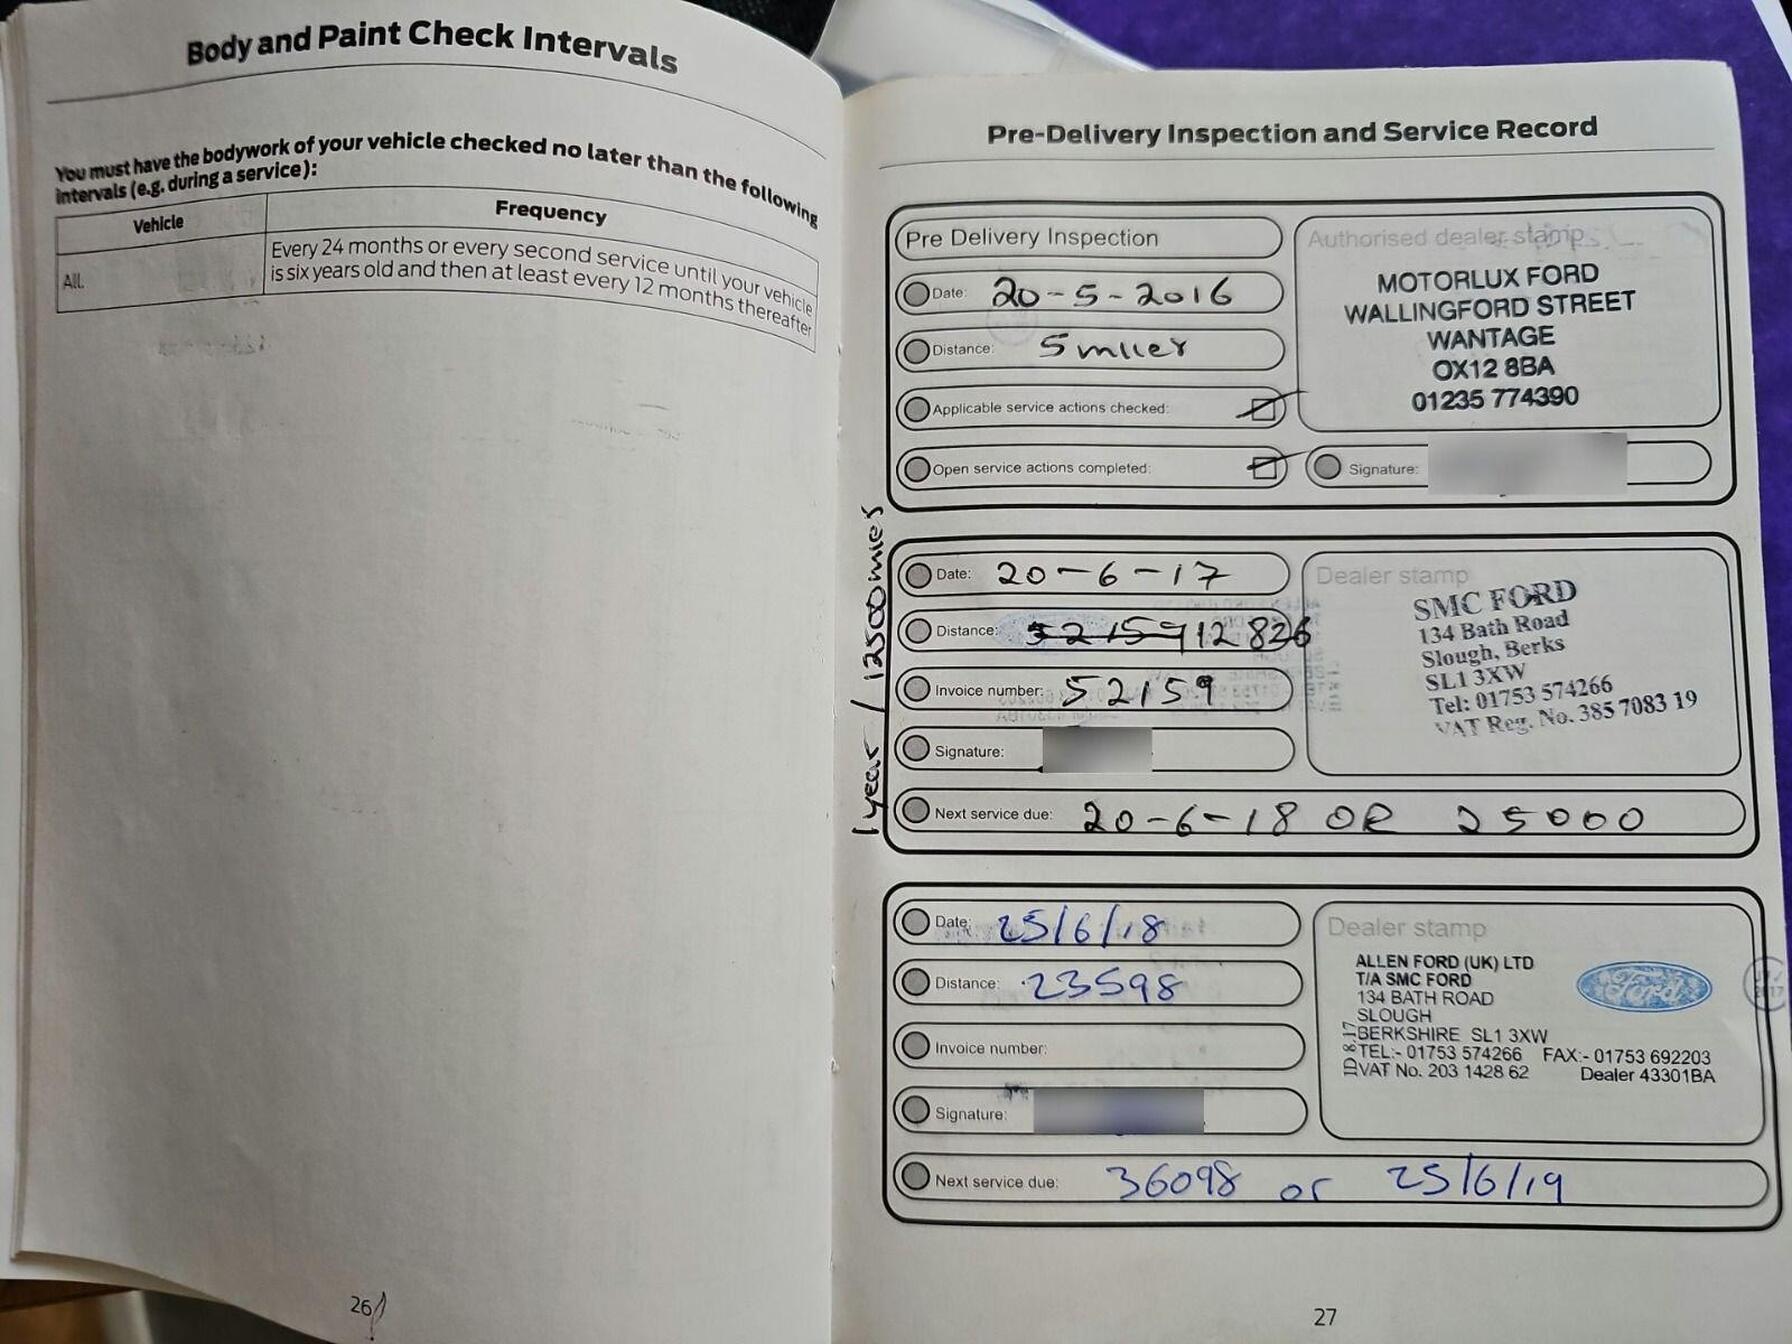 Body and Paint Check Intervals
You must have the bodywork of your vehicle checked no later than the following
intervals (e.g. during a service):
Vehicle
Frequency
All.
Every 24 months or every second service until your vehicle
is six years old and then at least every 12 months thereafter
26
Pre-Delivery Inspection and Service Record
Pre Delivery Inspection
Date: 20-5-2016
Distance: 5 miles
Applicable service actions checked:
Open service actions completed:
Authorised dealer stamp
MOTORLUX FORD
WALLINGFORD STREET
WANTAGE
OX12 8BA
01235 774390
Signature:
1 year / 12500 miles
Date: 20-6-17
Distance: 52159 12826
Invoice number: 52159
Signature:
Dealer stamp
SMC FORD
134 Bath Road
Slough, Berks
SL1 3XW
Tel: 01753 574266
VAT Reg. No. 385 7083 19
Next service due: 20-6-18 OR 25000
Date: 25/6/18
Distance: 23598
Invoice number:
Signature:
Dealer stamp
ALLEN FORD (UK) LTD
T/A SMC FORD
134 BATH ROAD
SLOUGH
BERKSHIRE SL1 3XW
TEL:- 01753 574266 FAX:- 01753 692203
VAT No. 203 1428 62 Dealer 43301BA
Ford
Next service due: 36098 or 25/6/19
27